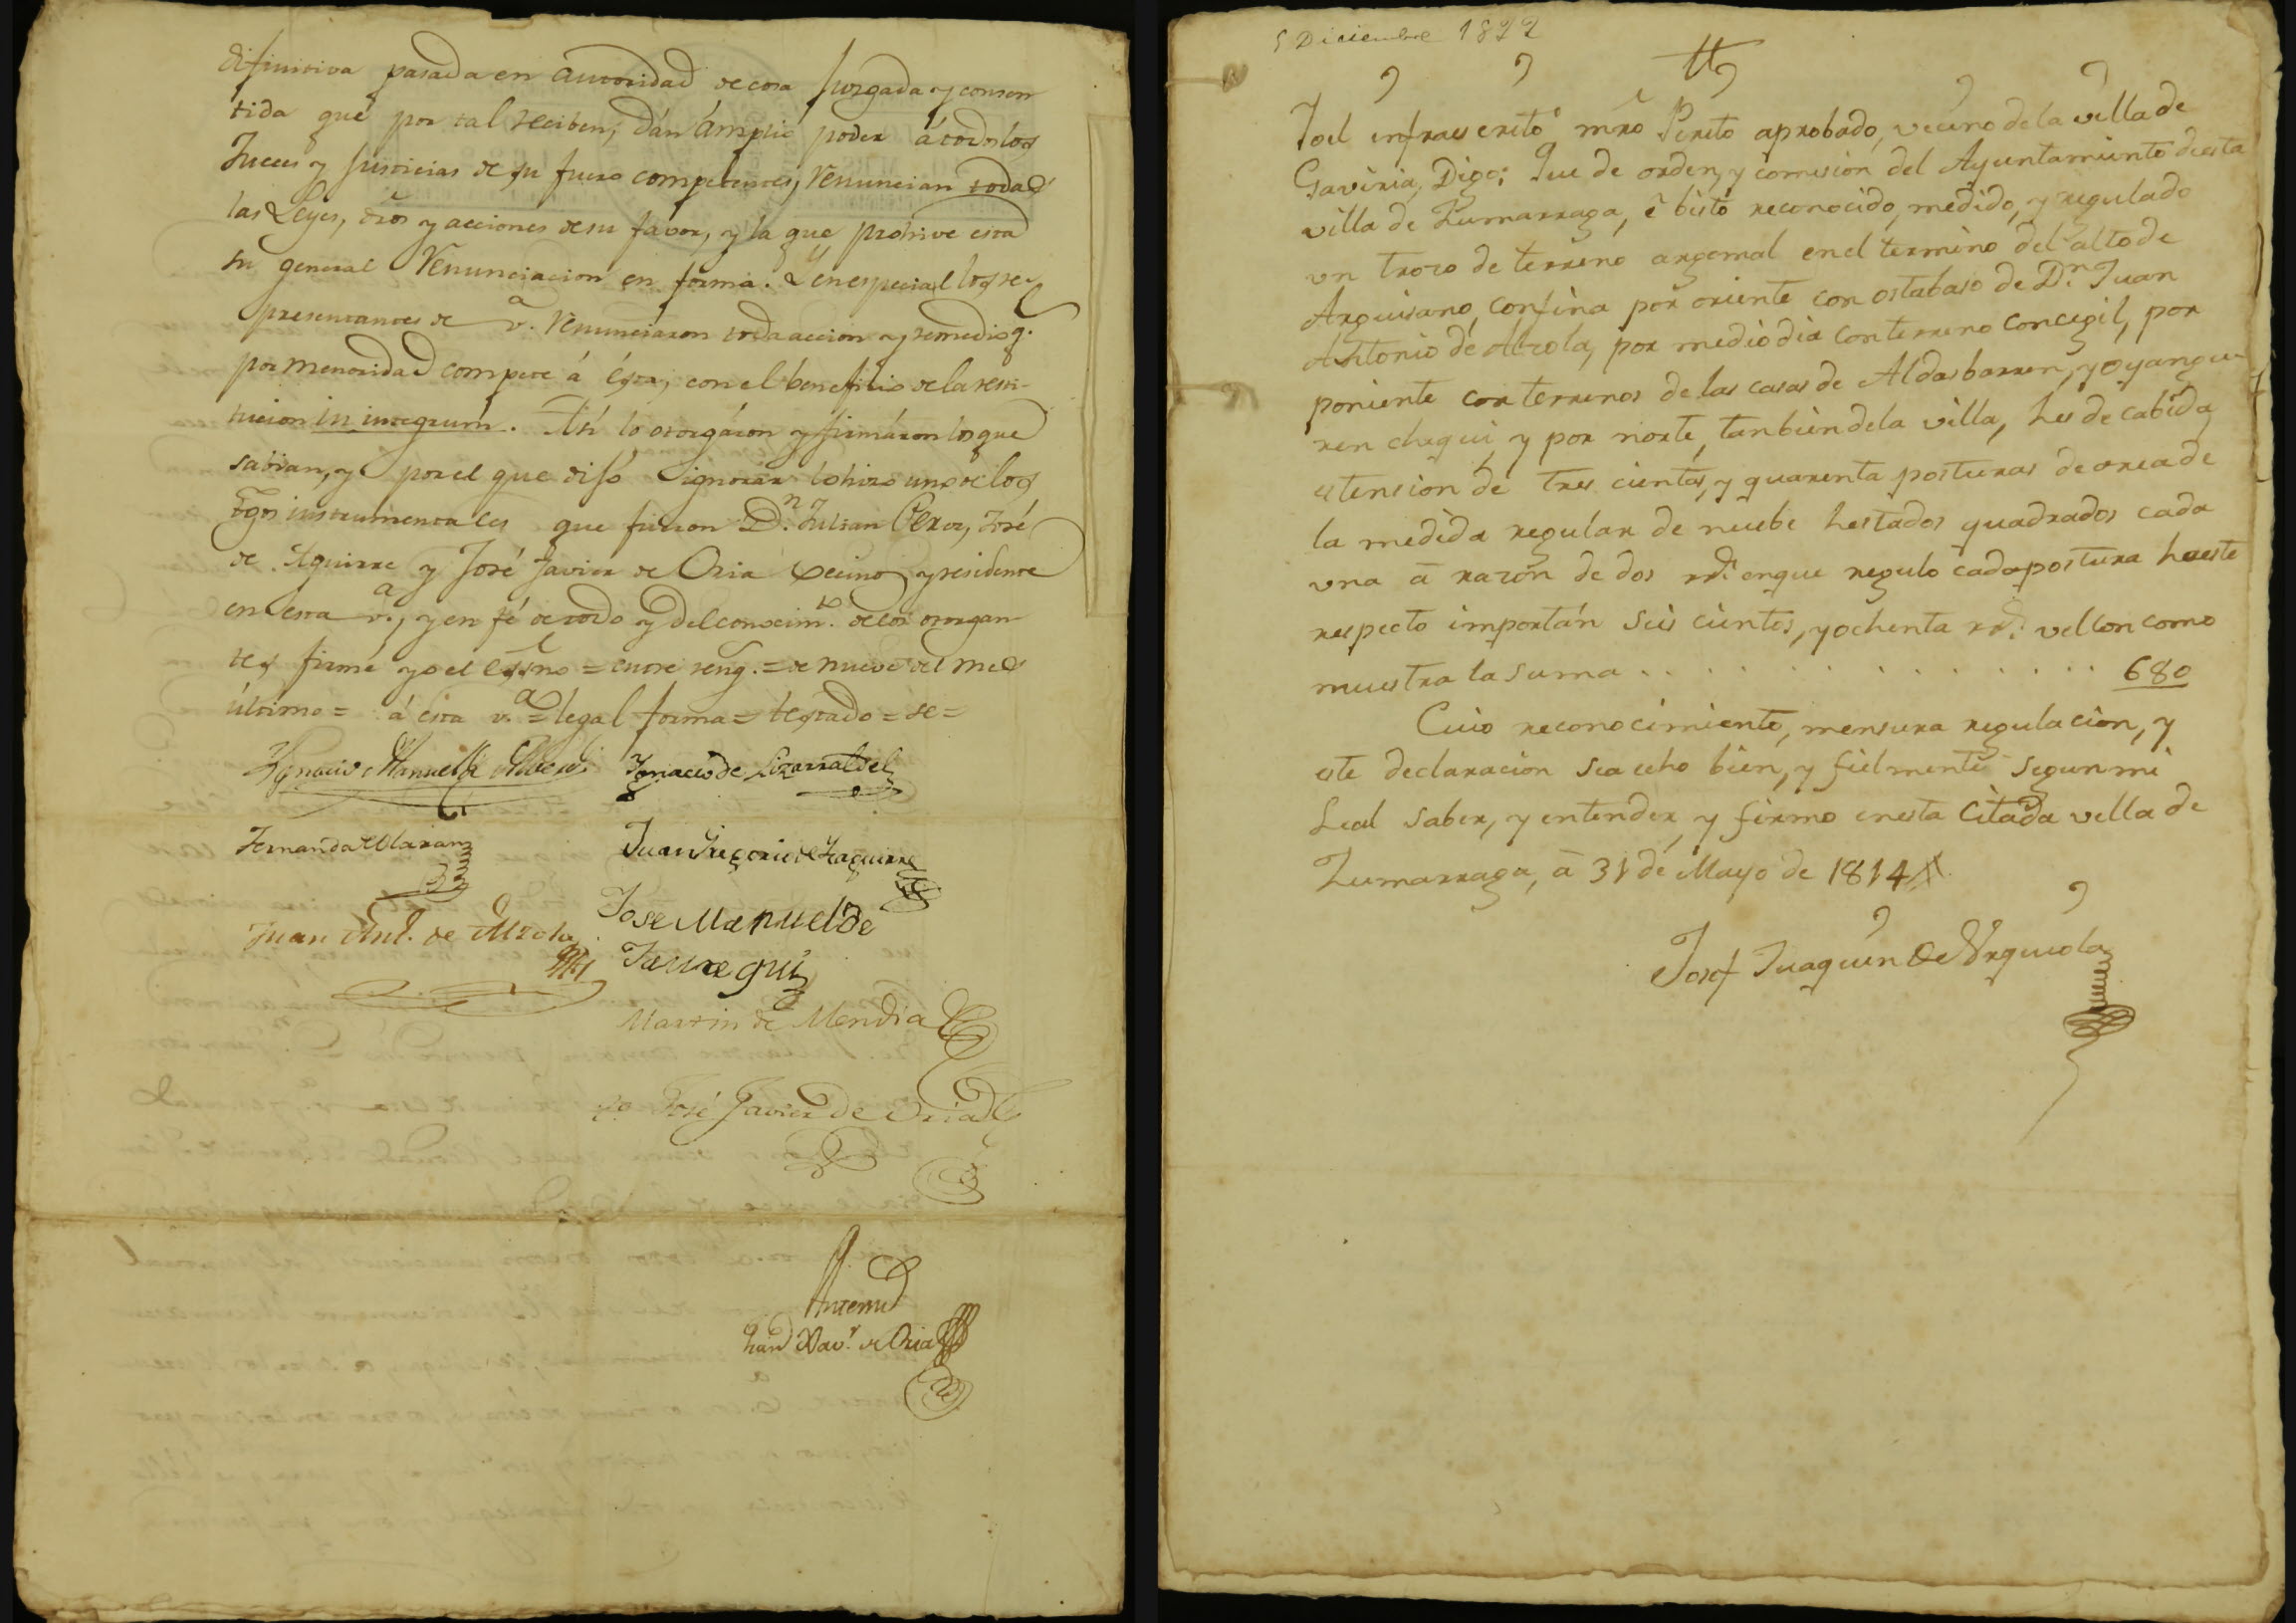 difinitiva pasada en autoridad de cosa Juzgada y consen
tida que por tal reciben, dán ámplio poder á todos los
Jueces y Justicias de su fuero competentes, renuncian todas
las Leyes, dros y acciones de su favor, y la que prohive esta
su general renunciacion en forma. Y en especial los re-
presentantes de v.ª renunciaron toda accion y remedio q.
por menoridad compete á ésta, con el beneficio de la resti-
tucion in integrum. Asi lo otorgáron y firmáron los que
sabian, y por el que dijó ignorar lo hizo uno de los
tgos instrumentales que fueron D.n Julian Perez, José
de Aguirre y José Javier de Oria vecino y residente
en esta v.ª, y en fé de todo y del conocim.to de los otorgan-
tes firmé yo el Essno = entre reng. = de nueve del mes
último = á esta v.ª = legal forma = testado = se =
Ygnacio Manuel de Alberdi Ignacio de Lizarralde
Fernando de Alaran Juan Gregorio de Yzaguirre
Juan Ant. de Alzola Jose Manuel de
Jauregui
Martin de Mendia
tgo José Javier de Oria
Antemi
Juan Xav.r de Oria
5 Diciembre 1822
Yo el infraescrito mro Perito aprobado, vecino de la villa de
Gaviria, Digo; Que de orden, y comision del Ayuntamiento de esta
villa de Zumarraga, é bisto reconocido, medido, y regulado
vn trozo de terreno argomal en el termino del alto de
Arguisano, confina por oriente con ostabaso de D.n Juan
Antonio de Alzola, por medio dia con terreno concegil, por
poniente con terrenos de las casas de Aldasbarren, y oyangu-
ren chiqui, y por norte, tanbien de la villa, hes de cabida
estension de tres cientas, y quarenta posturas de area de
la medida regular de nuebe hestados quadrados cada
vna á razon de dos rr.s en que regulo cada postura ha este
respecto importán seis cientos, y ochenta rr.s vellon como
muestra la suma . . . . . . . . . . . . . . 680
Cuio reconocimiento, mensura regulacion, y
este declaracion sea echo bien, y fielmente segun mi
Leal saber, y entender y firmo en esta Citada villa de
Zumarraga, á 31 de Mayo de 1814
Josef Juaquin de Vrquiola